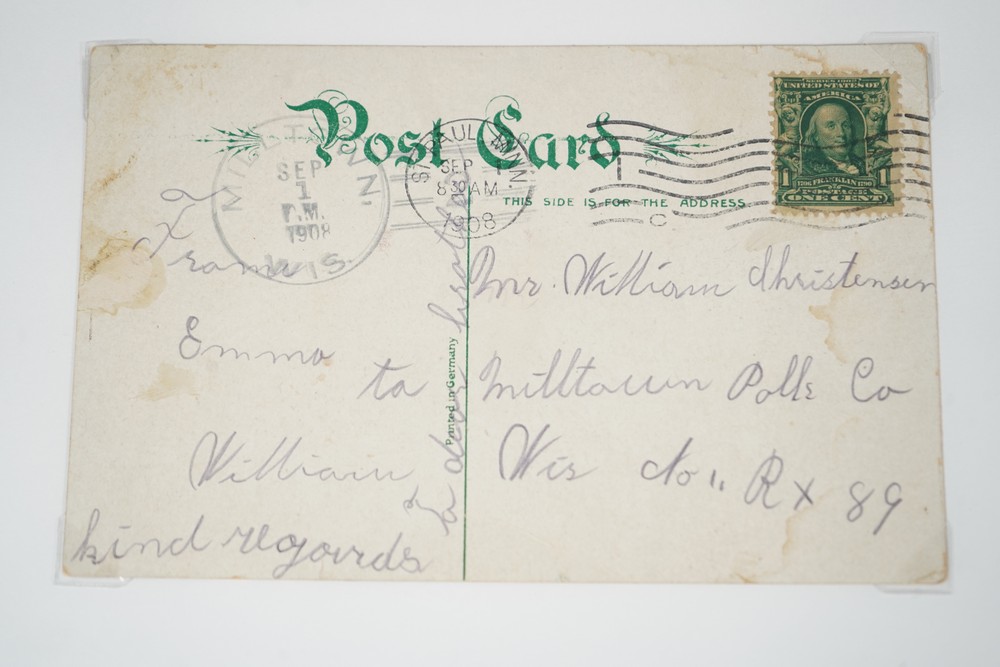 Post Card
THIS SIDE IS FOR THE ADDRESS
MILLTOWN
SEP
1
P.M.
1908
WIS.
ST. PAUL, MINN.
SEP 1
8 30 AM
1908
C
SERIES 1902
UNITED STATES OF
AMERICA
1 1706 FRANKLIN 1790 1
POSTAGE
ONE CENT
From
Emma
to
William
kind regards
to a dear brother
Printed in Germany
Mr. William Christensen
Milltown Polk Co
Wis No 11 Rx 89